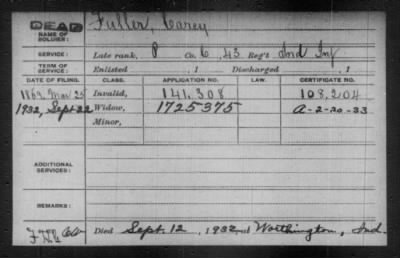 DEAD
NAME OF SOLDIER: Fuller, Carey
SERVICE: Late rank, P Co. C, 43 Reg't Ind Inf
TERM OF SERVICE: Enlisted , 1 Discharged , 1
DATE OF FILING. CLASS. APPLICATION NO. CERTIFICATE NO.
1869, Mar 25 Invalid, 141,308 108,204
1932, Sept 22 Widow, 1725375 A-2-20-33
Minor,
ADDITIONAL SERVICES:
REMARKS:
Died Sept. 12, 1932 at Worthington, Ind.